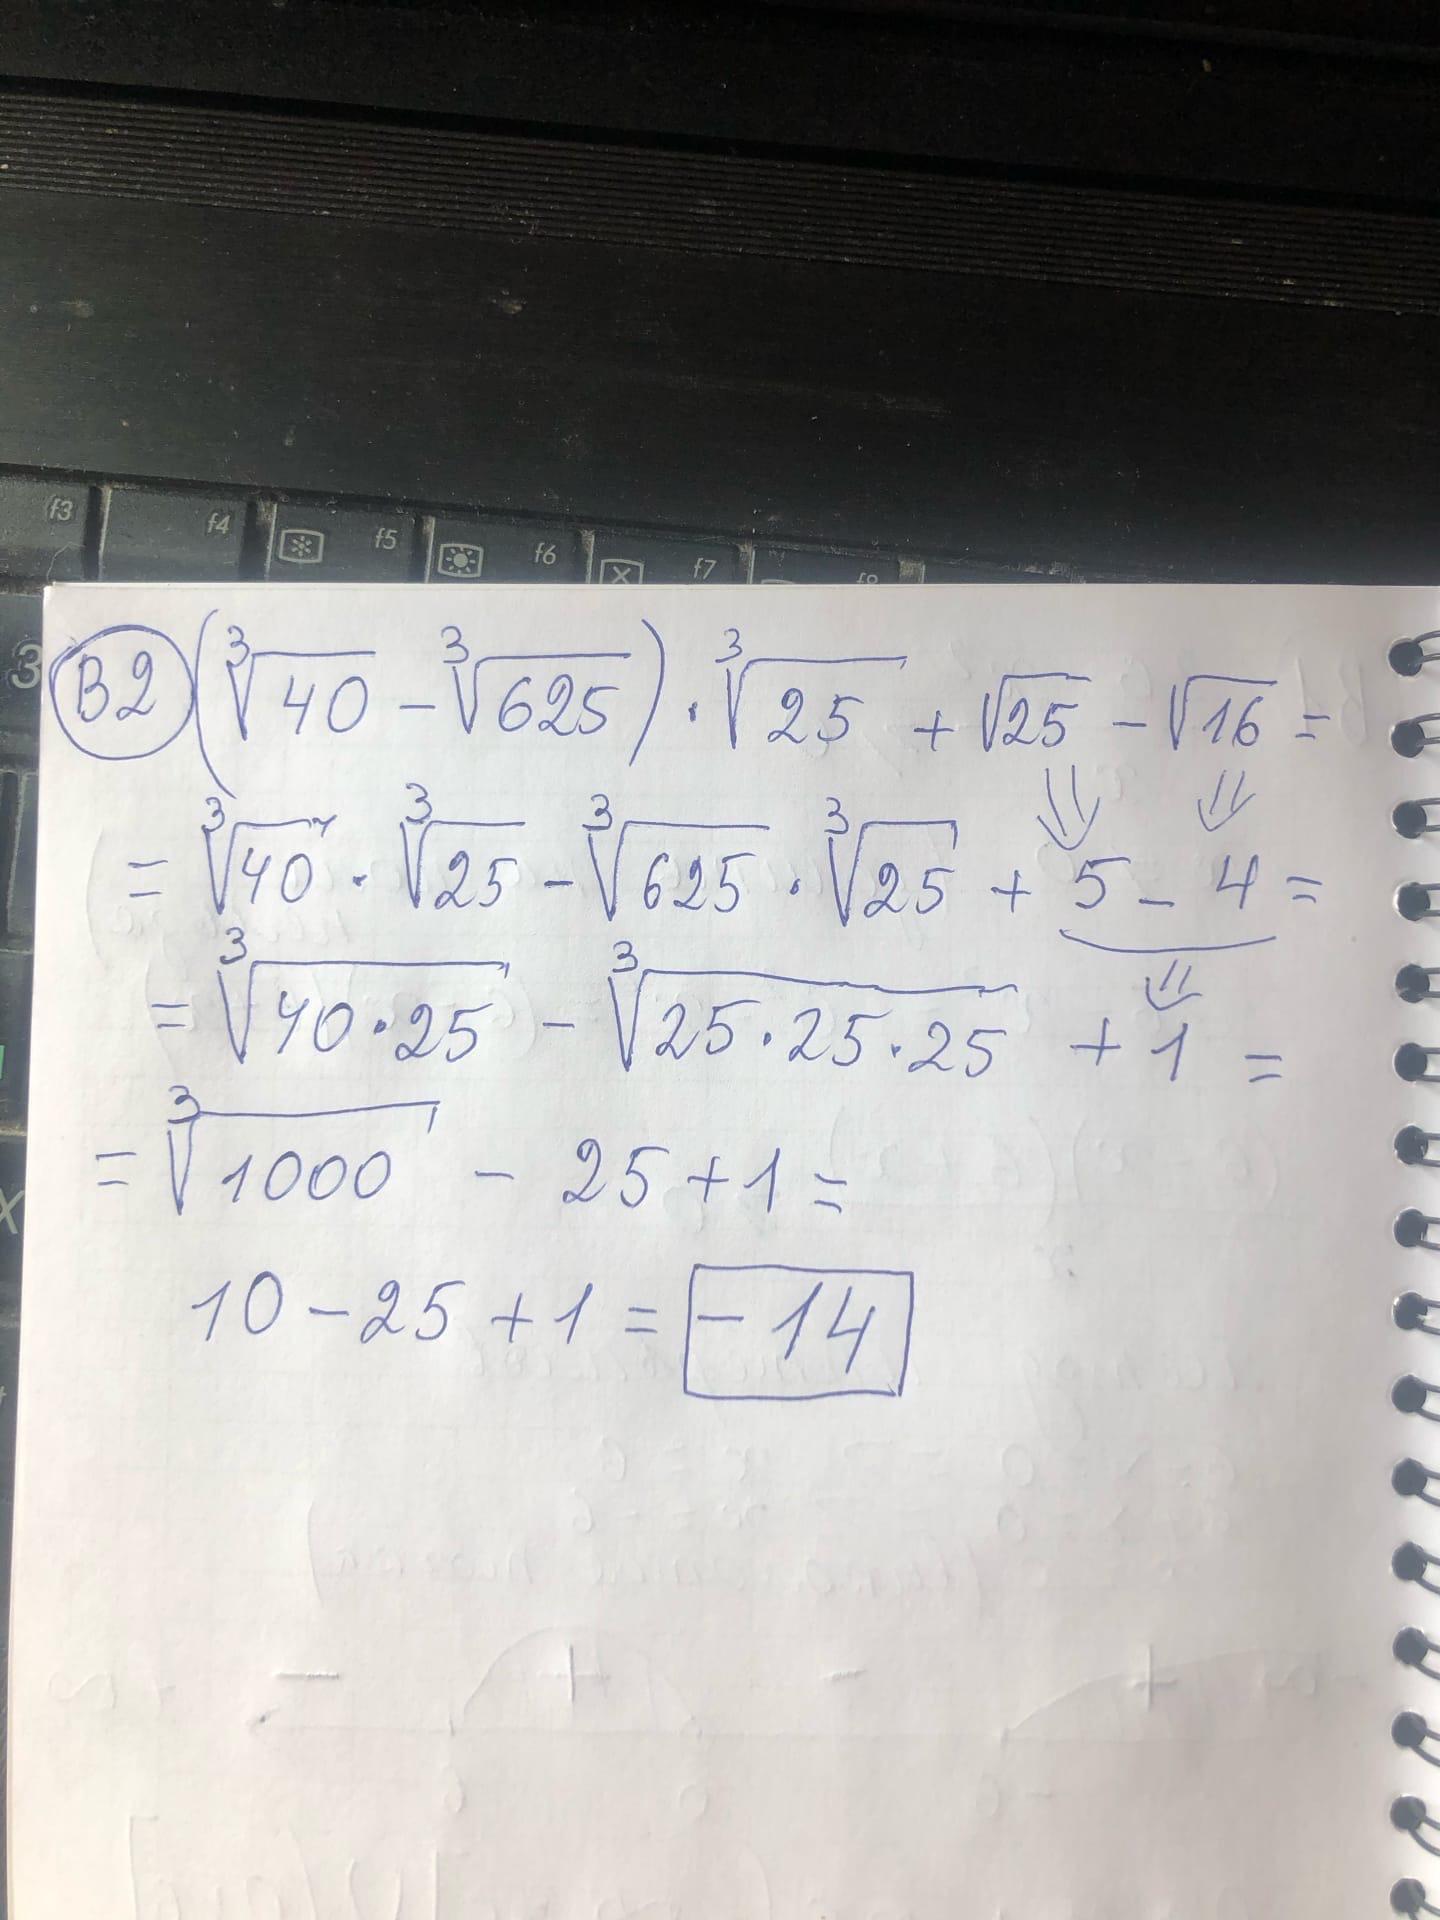 f3 f4 f5 f6 f7
3
B2 (∛40 - ∛625) · ∛25 + √25 - √16 =
= ∛40 · ∛25 - ∛625 · ∛25 + 5 - 4 =
= ∛40·25 - ∛25·25·25 + 1 =
X
= ∛1000 - 25 + 1 =
10 - 25 + 1 = -14